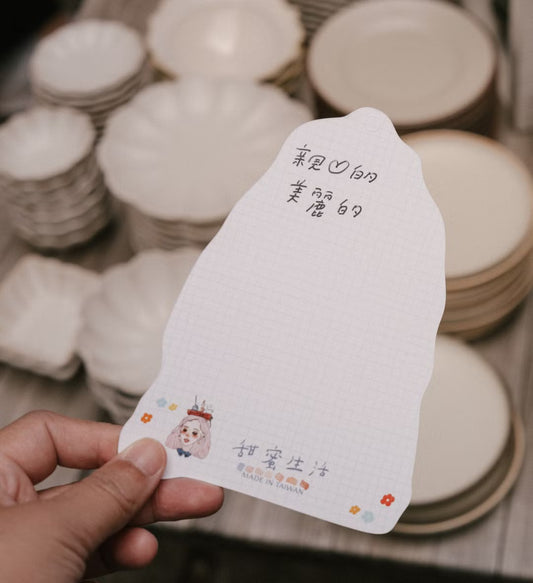 親♡的
美麗的
甜蜜生活
MADE IN TAIWAN